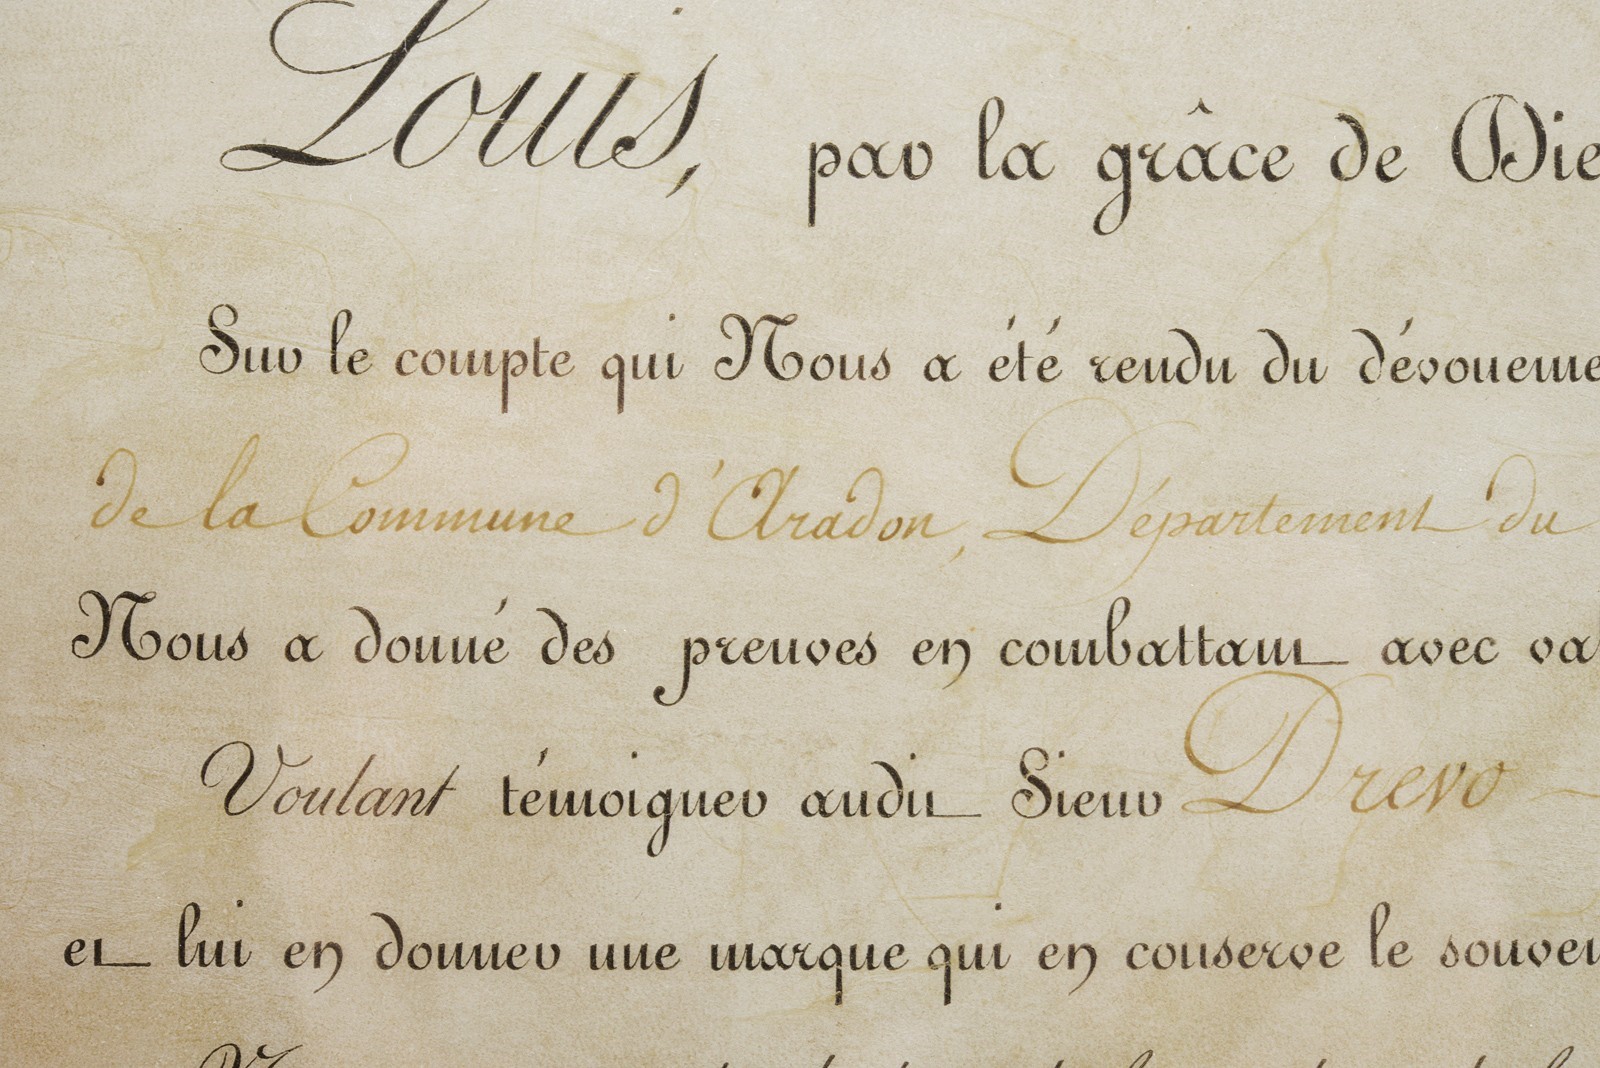 Louis, par la grâce de Die
Sur le compte qui Nous a été rendu du dévoueme
de la Commune d'Aradon, Département du
Nous a donné des preuves en combattant avec va
Voulant témoigner audit Sieur Drevo
et lui en donner une marque qui en conserve le souven